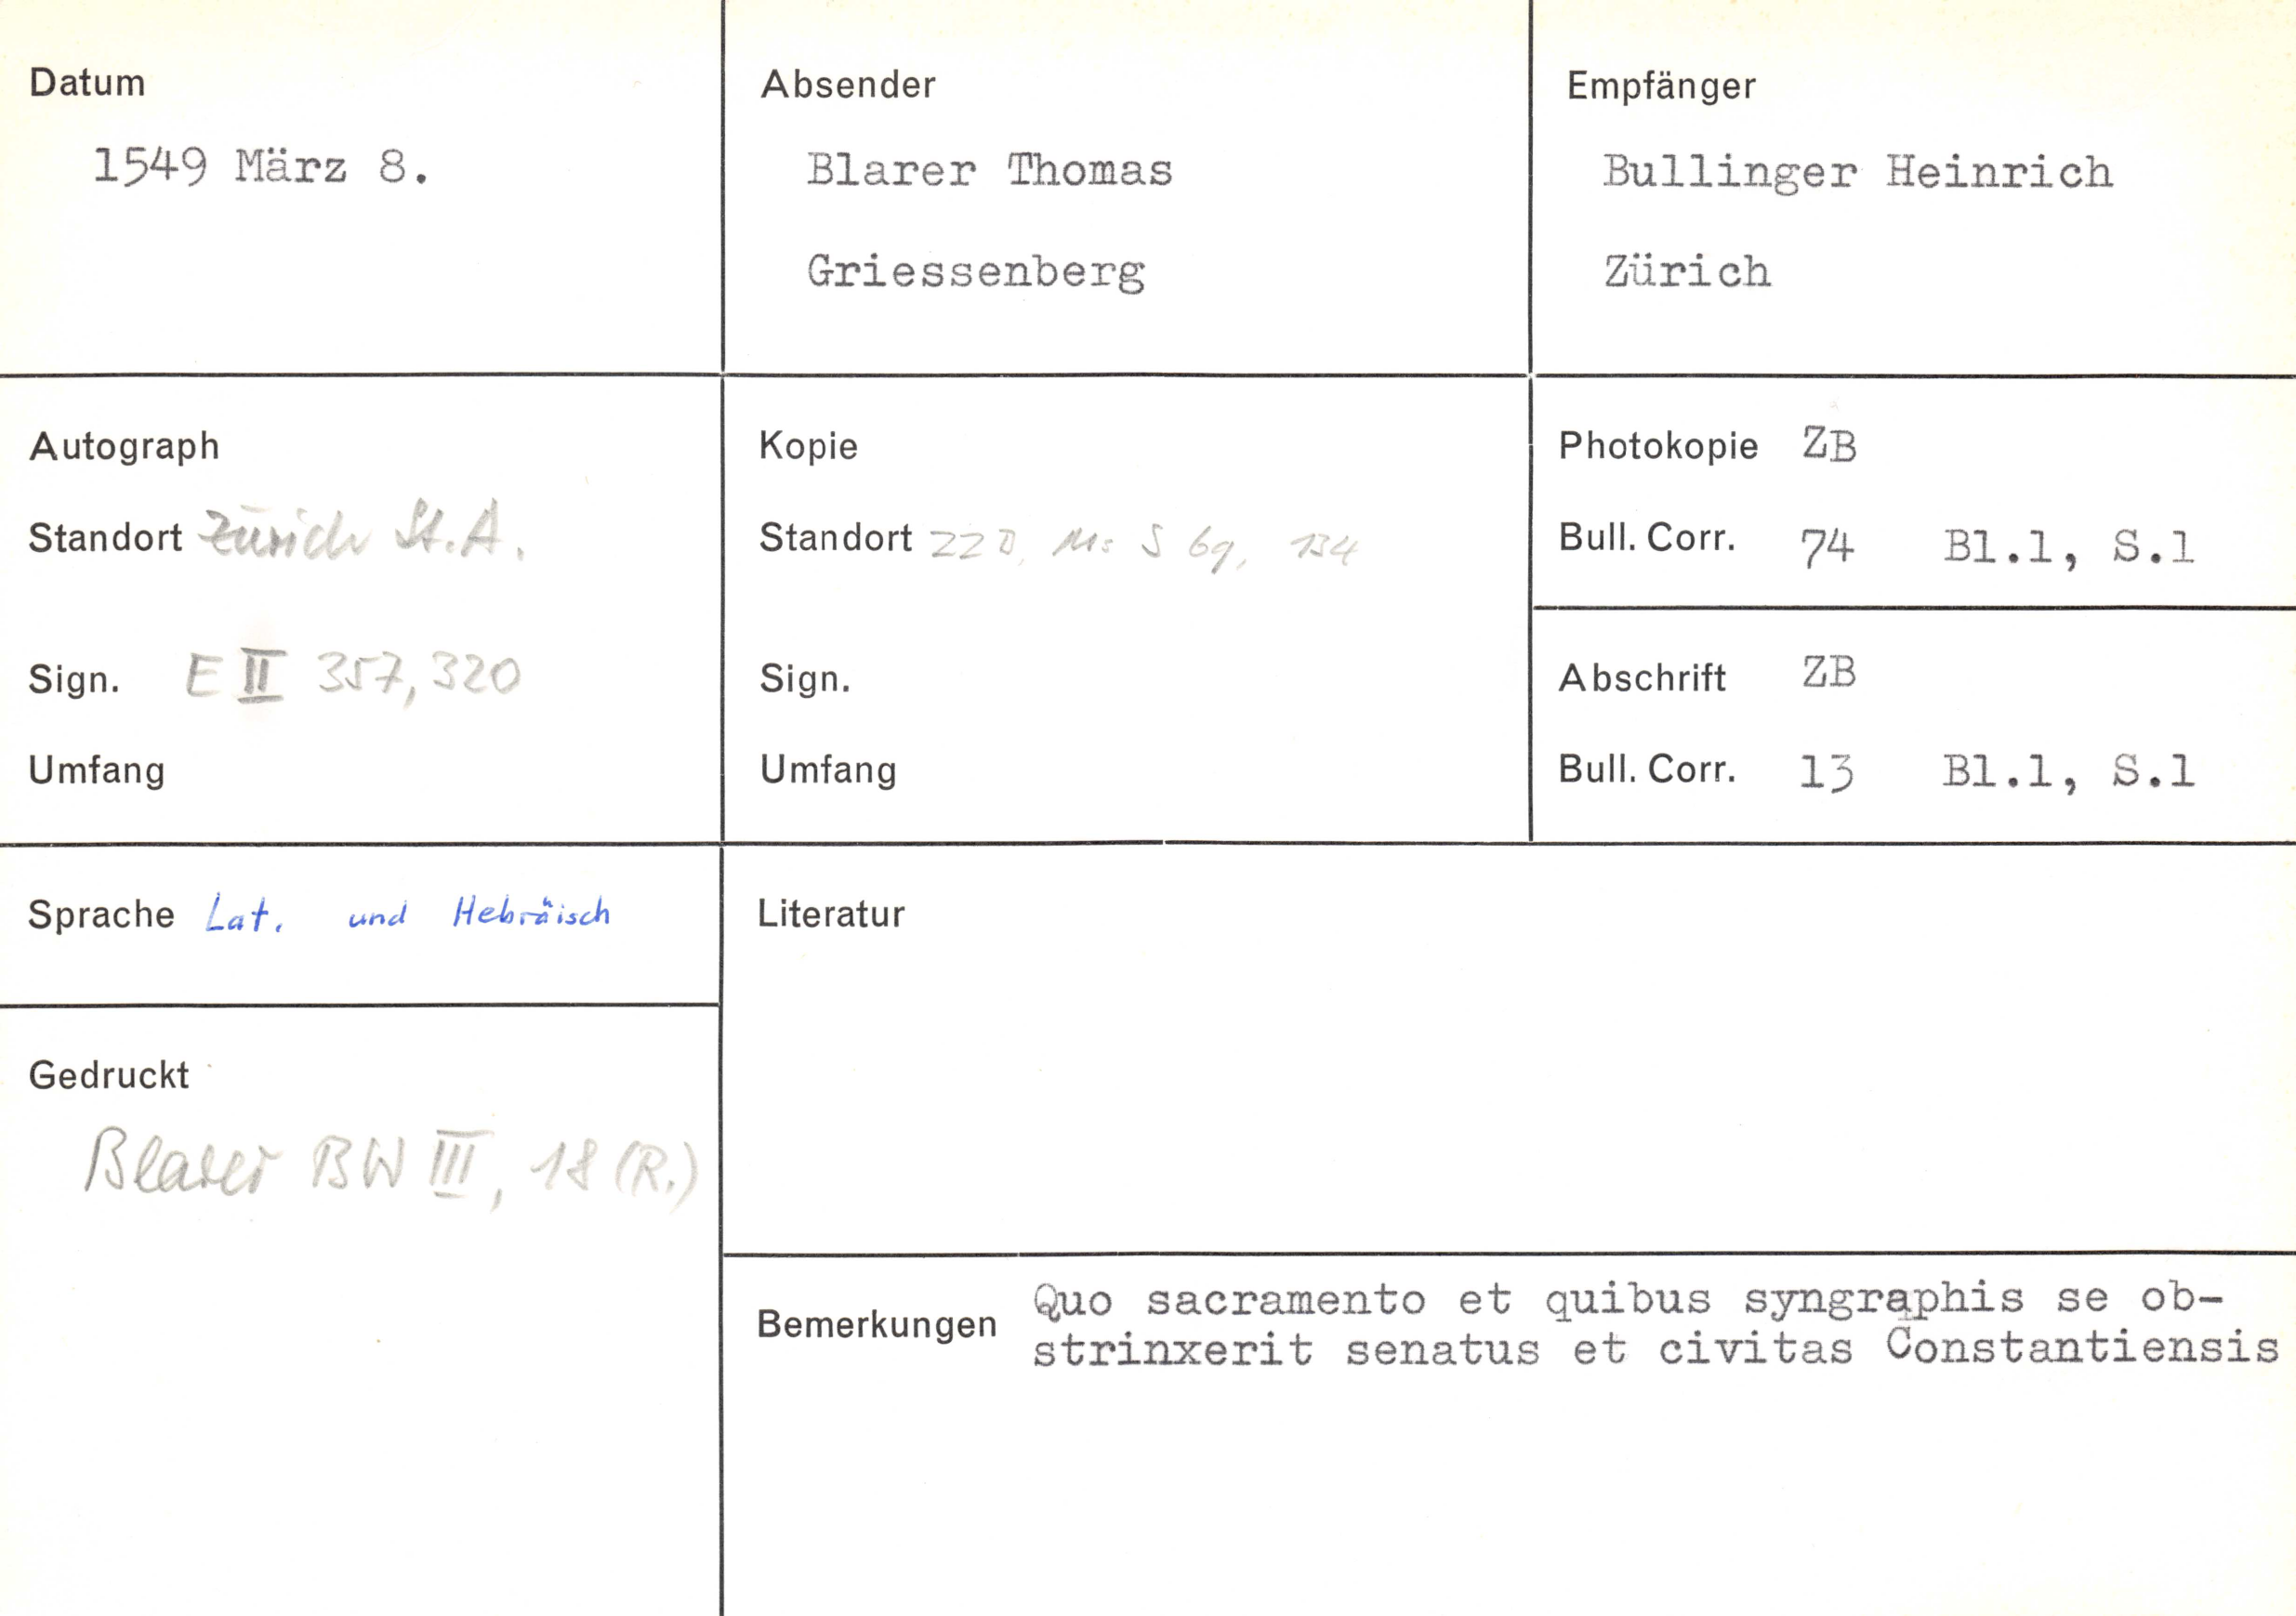 Datum
1549 März 8.
Absender
Blarer Thomas
Griessenberg
Empfänger
Bullinger Heinrich
Zürich
Autograph
Standort Zürich St.A.
Sign. E II 357, 320
Umfang
Kopie
Standort ZZB, Ms S 69, 134
Sign.
Umfang
Photokopie ZB
Bull. Corr. 74 Bl.1, S.1
Abschrift ZB
Bull. Corr. 13 Bl.1, S.1
Sprache Lat. und Hebräisch
Gedruckt
Blarer BW III, 18 (R.)
Literatur
Bemerkungen Quo sacramento et quibus syngraphis se ob-
strinxerit senatus et civitas Constantiensis